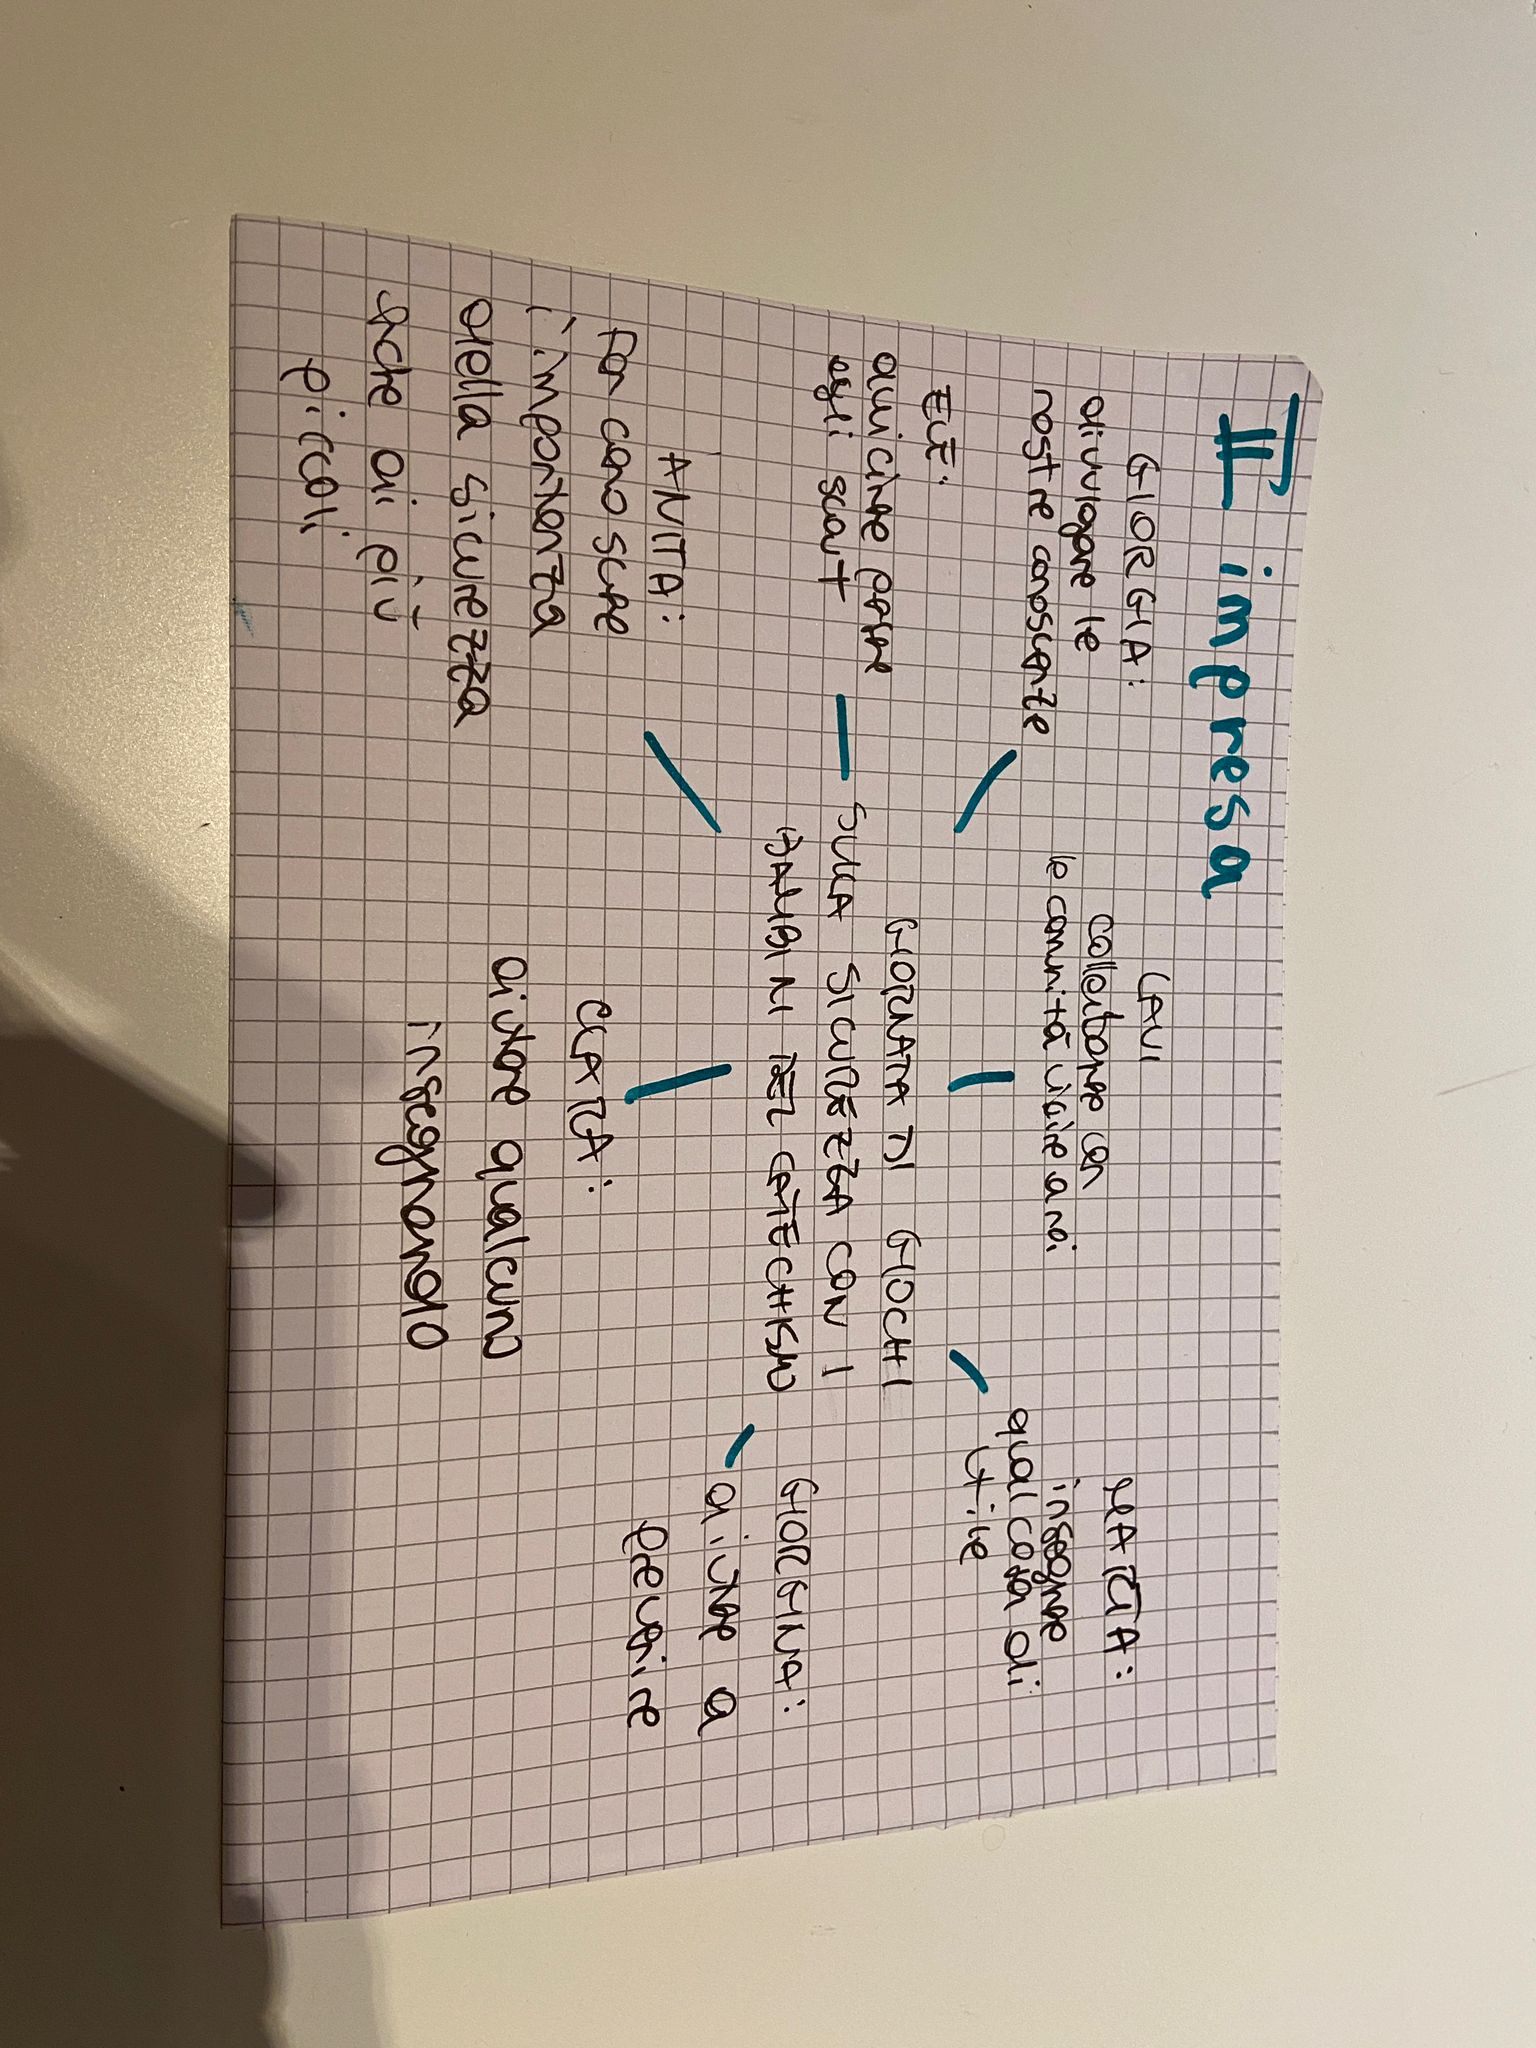 II impresa
GIORGIA:
divulgare le
nostre conoscenze
LAVI
collaborare con
le comunità vicine a noi
MARTA:
insegnare
qualcosa di
utile
ELE:
avvicinare persone
agli scout
GIORNATA DI GIOCHI
SULLA SICUREZZA CON I
BAMBINI DEL CATECHISMO
ANITA:
far conoscere
l'importanza
della sicurezza
anche ai più
piccoli
CLARA:
aiutare qualcuno
insegnando
GIORGINA:
aiutare a
prevenire